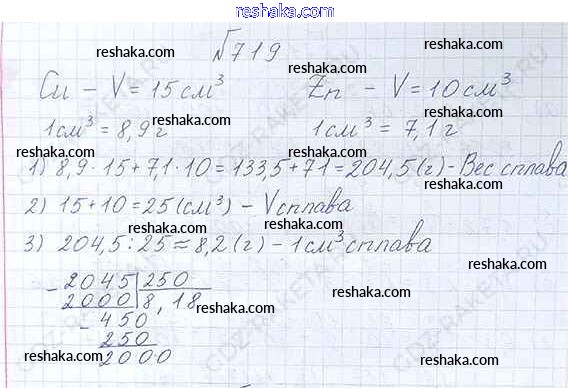 reshaka.com
№719
reshaka.com reshaka.com
Cu - V = 15 см³ Zn - V = 10 см³
reshaka.com reshaka.com
1 см³ = 8,9 г 1 см³ = 7,1 г
reshaka.com reshaka.com reshaka.com
1) 8,9 · 15 + 7,1 · 10 = 133,5 + 71 = 204,5 (г) - Вес сплава
reshaka.com
2) 15 + 10 = 25 (см³) - V сплава
reshaka.com
3) 204,5 : 25 ≈ 8,2 (г) - 1 см³ сплава
reshaka.com reshaka.com
- 2045 | 250
reshaka.com reshaka.com
2000 8,18
reshaka.com
- 450
250
reshaka.com reshaka.com
2000